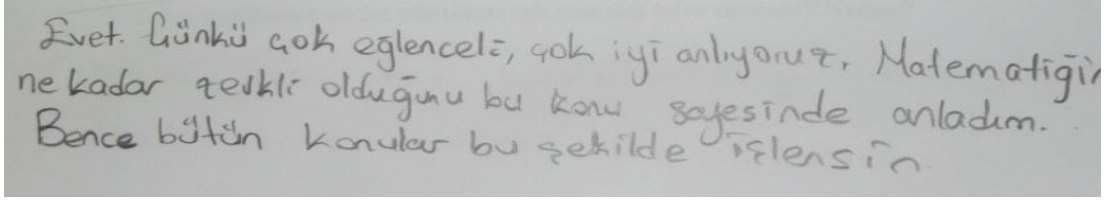 Evet. Günkü çok eğlenceli, çok iyi anlıyoruz, Matematiğin
ne kadar zevkli olduğunu bu konu sayesinde anladım.
Bence bütün konular bu şekilde işlensin.